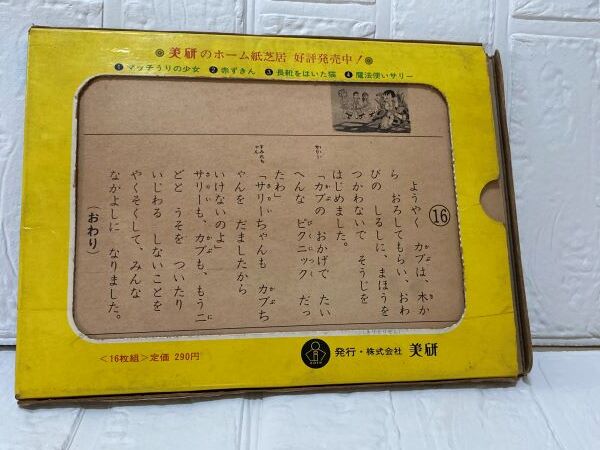 美研のホーム紙芝居 好評発売中!
❶ マッチうりの少女 ❷ 赤ずきん ❸ 長靴をはいた猫 ❹ 魔法使いサリー
⑯
ようやく カブは、木か
ら おろしてもらい、おわ
びの しるしに、まほうを
つかわないで そうじを
はじめました。
「カブの おかげで たい
へんな ピクニック だっ
たわ」
「サリーちゃんも カブち
ゃんを だましたから
いけないのよ」
サリーも、カブも、もう二
どと うそを ついたり
いじわる しないことを
やくそくして、みんな
なかよしに なりました。
(おわり)
<16枚組>定価 290円
発行・株式会社 美研